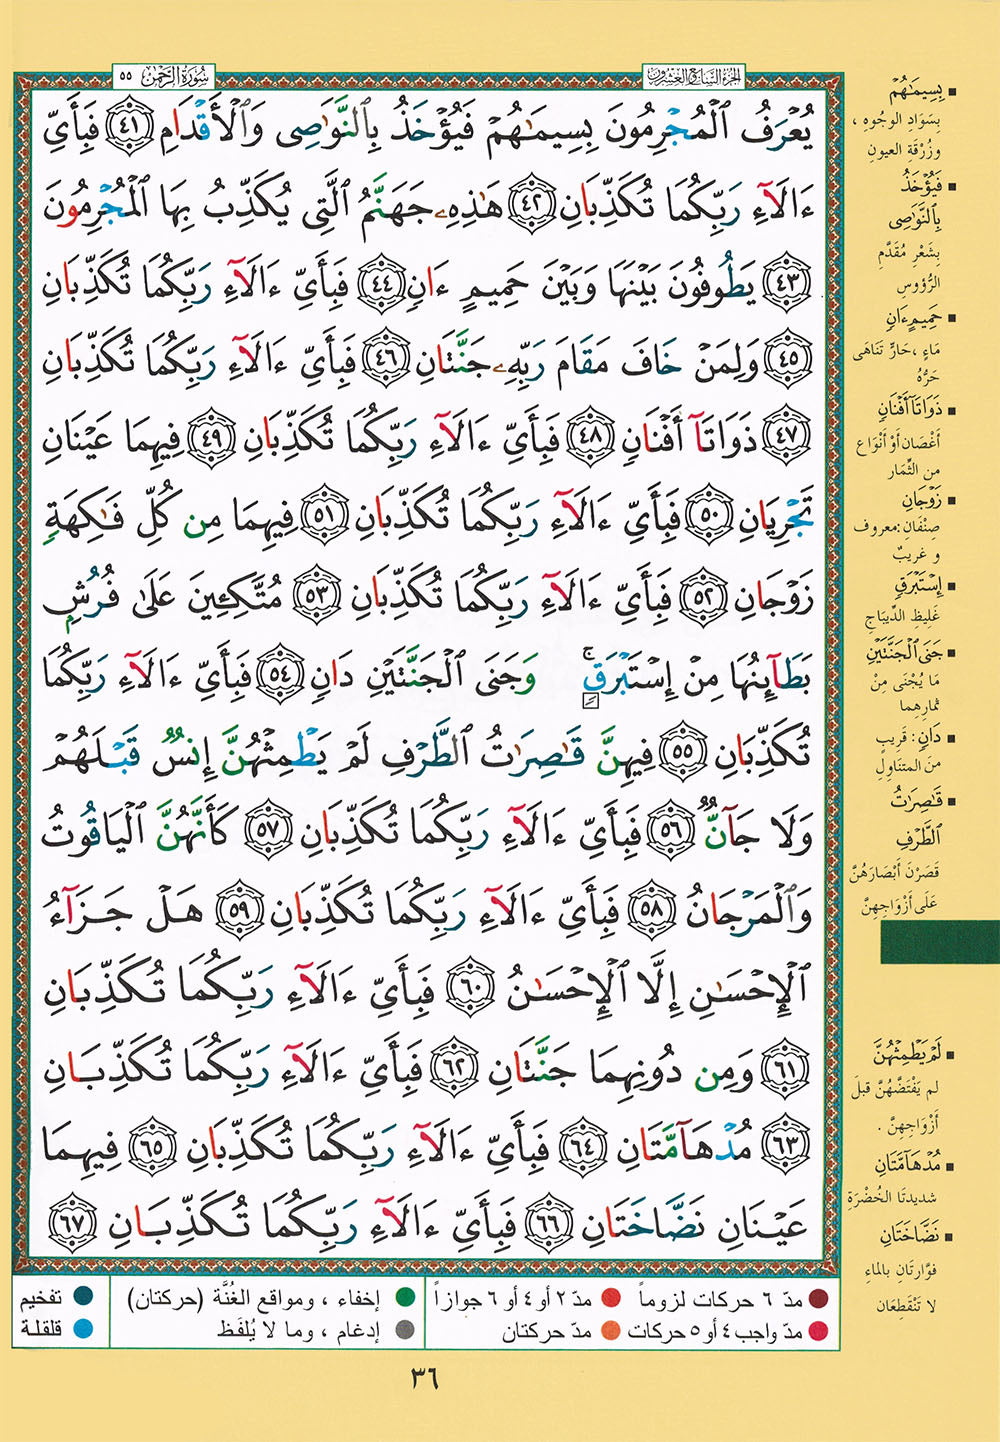 الجزء السابع والعشرون
سُورَةُ الرَّحْمٰن ٥٥
يُعْرَفُ ٱلْمُجْرِمُونَ بِسِيمَـٰهُمْ فَيُؤْخَذُ بِٱلنَّوَٰصِى وَٱلْأَقْدَامِ ٤١ فَبِأَىِّ
ءَالَآءِ رَبِّكُمَا تُكَذِّبَانِ ٤٢ هَـٰذِهِۦ جَهَنَّمُ ٱلَّتِى يُكَذِّبُ بِهَا ٱلْمُجْرِمُونَ
٤٣ يَطُوفُونَ بَيْنَهَا وَبَيْنَ حَمِيمٍ ءَانٍ ٤٤ فَبِأَىِّ ءَالَآءِ رَبِّكُمَا تُكَذِّبَانِ
٤٥ وَلِمَنْ خَافَ مَقَامَ رَبِّهِۦ جَنَّتَانِ ٤٦ فَبِأَىِّ ءَالَآءِ رَبِّكُمَا تُكَذِّبَانِ
٤٧ ذَوَاتَآ أَفْنَانٍ ٤٨ فَبِأَىِّ ءَالَآءِ رَبِّكُمَا تُكَذِّبَانِ ٤٩ فِيهِمَا عَيْنَانِ
تَجْرِيَانِ ٥٠ فَبِأَىِّ ءَالَآءِ رَبِّكُمَا تُكَذِّبَانِ ٥١ فِيهِمَا مِن كُلِّ فَـٰكِهَةٍ
زَوْجَانِ ٥٢ فَبِأَىِّ ءَالَآءِ رَبِّكُمَا تُكَذِّبَانِ ٥٣ مُتَّكِـِٔينَ عَلَىٰ فُرُشٍۭ
بَطَآئِنُهَا مِنْ إِسْتَبْرَقٍۚ وَجَنَى ٱلْجَنَّتَيْنِ دَانٍ ٥٤ فَبِأَىِّ ءَالَآءِ رَبِّكُمَا
تُكَذِّبَانِ ٥٥ فِيهِنَّ قَـٰصِرَٰتُ ٱلطَّرْفِ لَمْ يَطْمِثْهُنَّ إِنسٌ قَبْلَهُمْ
وَلَا جَآنٌّ ٥٦ فَبِأَىِّ ءَالَآءِ رَبِّكُمَا تُكَذِّبَانِ ٥٧ كَأَنَّهُنَّ ٱلْيَاقُوتُ
وَٱلْمَرْجَانُ ٥٨ فَبِأَىِّ ءَالَآءِ رَبِّكُمَا تُكَذِّبَانِ ٥٩ هَلْ جَزَآءُ
ٱلْإِحْسَـٰنِ إِلَّا ٱلْإِحْسَـٰنُ ٦٠ فَبِأَىِّ ءَالَآءِ رَبِّكُمَا تُكَذِّبَانِ
٦١ وَمِن دُونِهِمَا جَنَّتَانِ ٦٢ فَبِأَىِّ ءَالَآءِ رَبِّكُمَا تُكَذِّبَانِ
٦٣ مُدْهَآمَّتَانِ ٦٤ فَبِأَىِّ ءَالَآءِ رَبِّكُمَا تُكَذِّبَانِ ٦٥ فِيهِمَا
عَيْنَانِ نَضَّاخَتَانِ ٦٦ فَبِأَىِّ ءَالَآءِ رَبِّكُمَا تُكَذِّبَانِ ٦٧
بِسِيمَـٰهُمْ
بِسَوَادِ الوجُوهِ ،
وزُرْقَةِ العيونِ
فَيُؤْخَذُ
بِٱلنَّوَٰصِى
بِشَعْرِ مُقَدَّمِ
الرُّؤوسِ
حَمِيمٍ ءَانٍ
مَاءٍ ،حَارٍّ تَنَاهَى
حَرُّهُ
ذَوَاتَآ أَفْنَانٍ
أَغْصَان أَوْ أَنْوَاع
من الثِّمَار
زَوْجَانِ
صِنْفَانِ :معروف
و غريبٌ
إِسْتَبْرَقٍ
غَلِيظِ الدِّيبَاجِ
جَنَى ٱلْجَنَّتَيْنِ
مَا يُجْنَى مِنْ
ثمارِهِما
دَانٍ : قَريبٍ
منَ المتناوِلِ
قَـٰصِرَٰتُ
ٱلطَّرْفِ
قَصَرْنَ أَبْصَارَهُنَّ
عَلَى أَزْوَاجِهِنَّ
لَمْ يَطْمِثْهُنَّ
لم يَفْتَضَّهُنَّ قبلَ
أَزْوَاجِهِنَّ .
مُدْهَآمَّتَانِ
شديدتَا الخُضْرَةِ
نَضَّاخَتَانِ
فَوَّارتَانِ بالماءِ
لا تَنْقَطِعَان
مدّ ٦ حركات لزوماً
مدّ ٢ أو ٤ أو ٦ جوازاً
إخفاء ، ومواقع الغُنَّة (حركتان)
تفخيم
مدّ واجب ٤ أو ٥ حركات
مدّ حركتان
إدغام ، وما لا يُلفَظ
قلقلة
٣٦